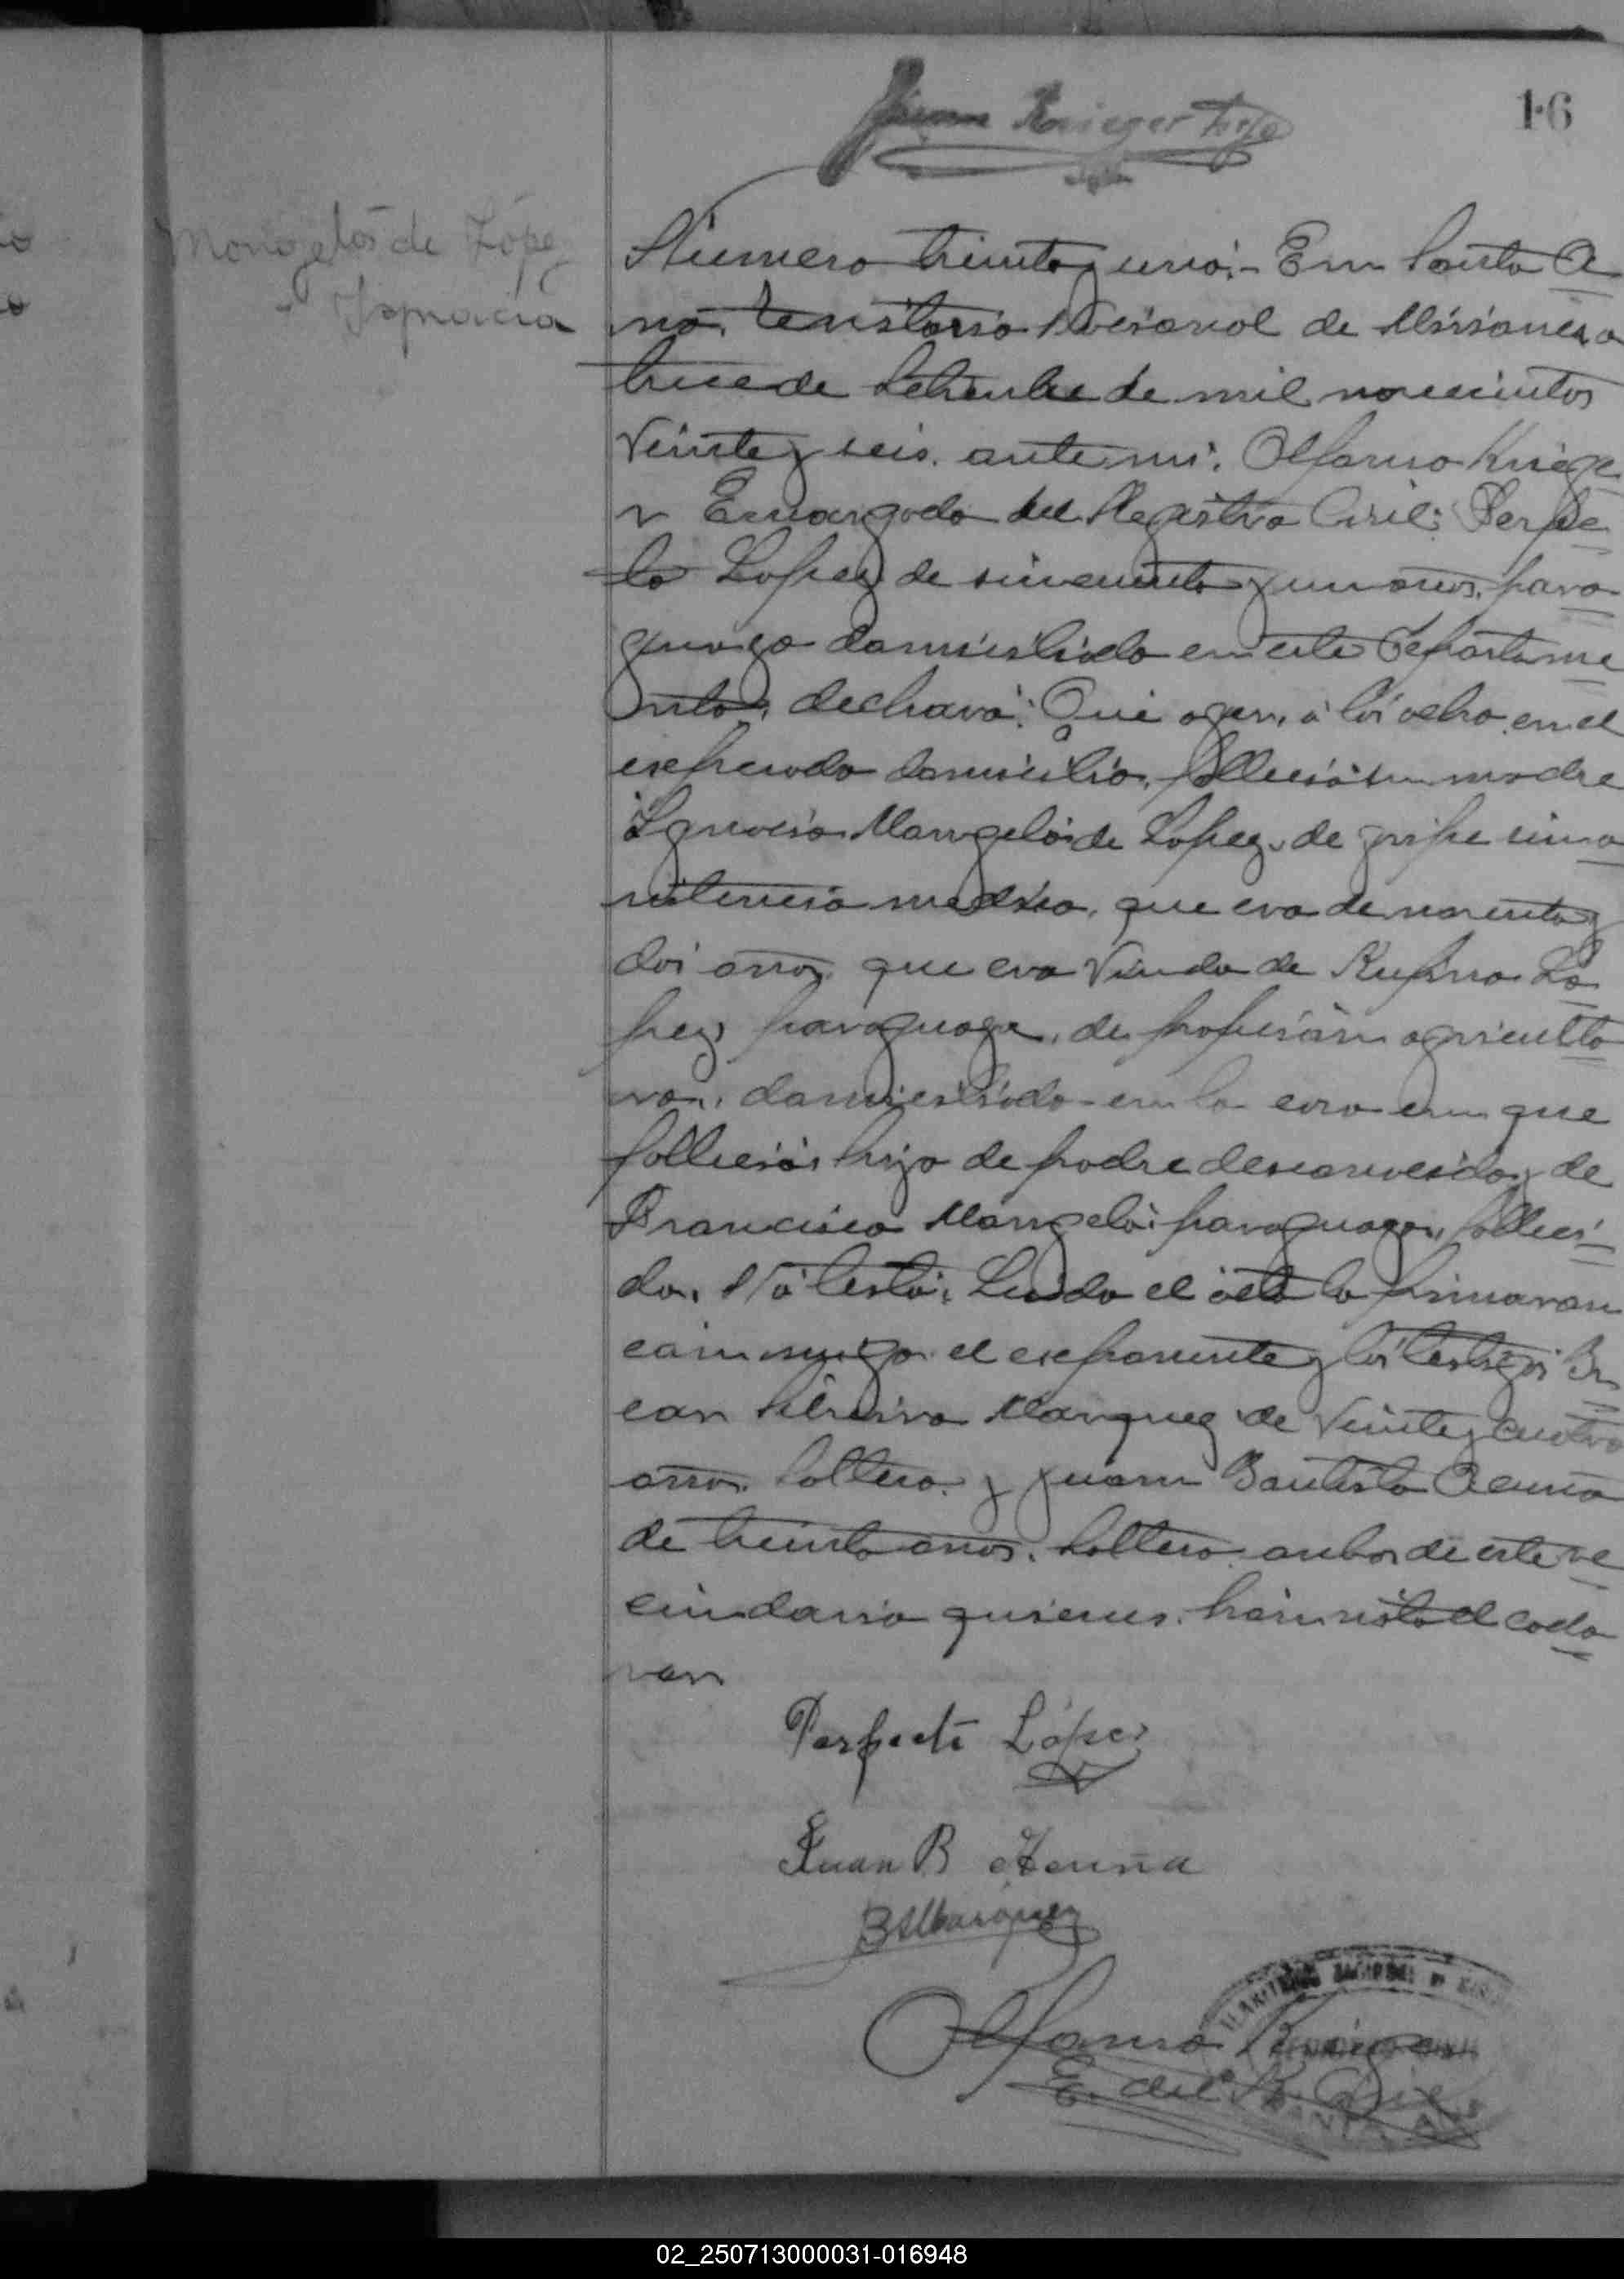 16
Mongelós de López
Ignacia
Número treinta y uno.- En Santa A
na, territorio Nacional de Misiones, a
trece de Setiembre de mil novecientos
veinte y seis. ante mi. Alfonso Kriege
r Encargado del Registro Civil: Perfe
to Lopez de cincuenta y un años, para
guayo domiciliado en este Departame
nto, declaró: Que ayer, a las ocho en el
expresado domicilio, falleció su madre
Ignacia Mongelós de Lopez, de gripe sin a
sistencia medica, que era de noventa y
dos años, que era Viuda de Rufino Lo
pez, paraguaya, de profesión agriculto
ra, domiciliada en la casa en que
falleció, hija de padre desconocido y de
Francisca Mongelós paraguaya, falleci
da, No testó. Leida el acta la firmaron
conmigo el exponente y los testigos
Marquez de veinte y cuatro
años. Soltero y Juan Bautista Acuña
de treinta años. Soltero ambos de este ve
cindario quienes han visto el cada
ver
Perfecto López
Juan B Acuña
B S Marquez
Alfonso Krieger
E. del R. Civil
SANTA ANA
02_250713000031-016948